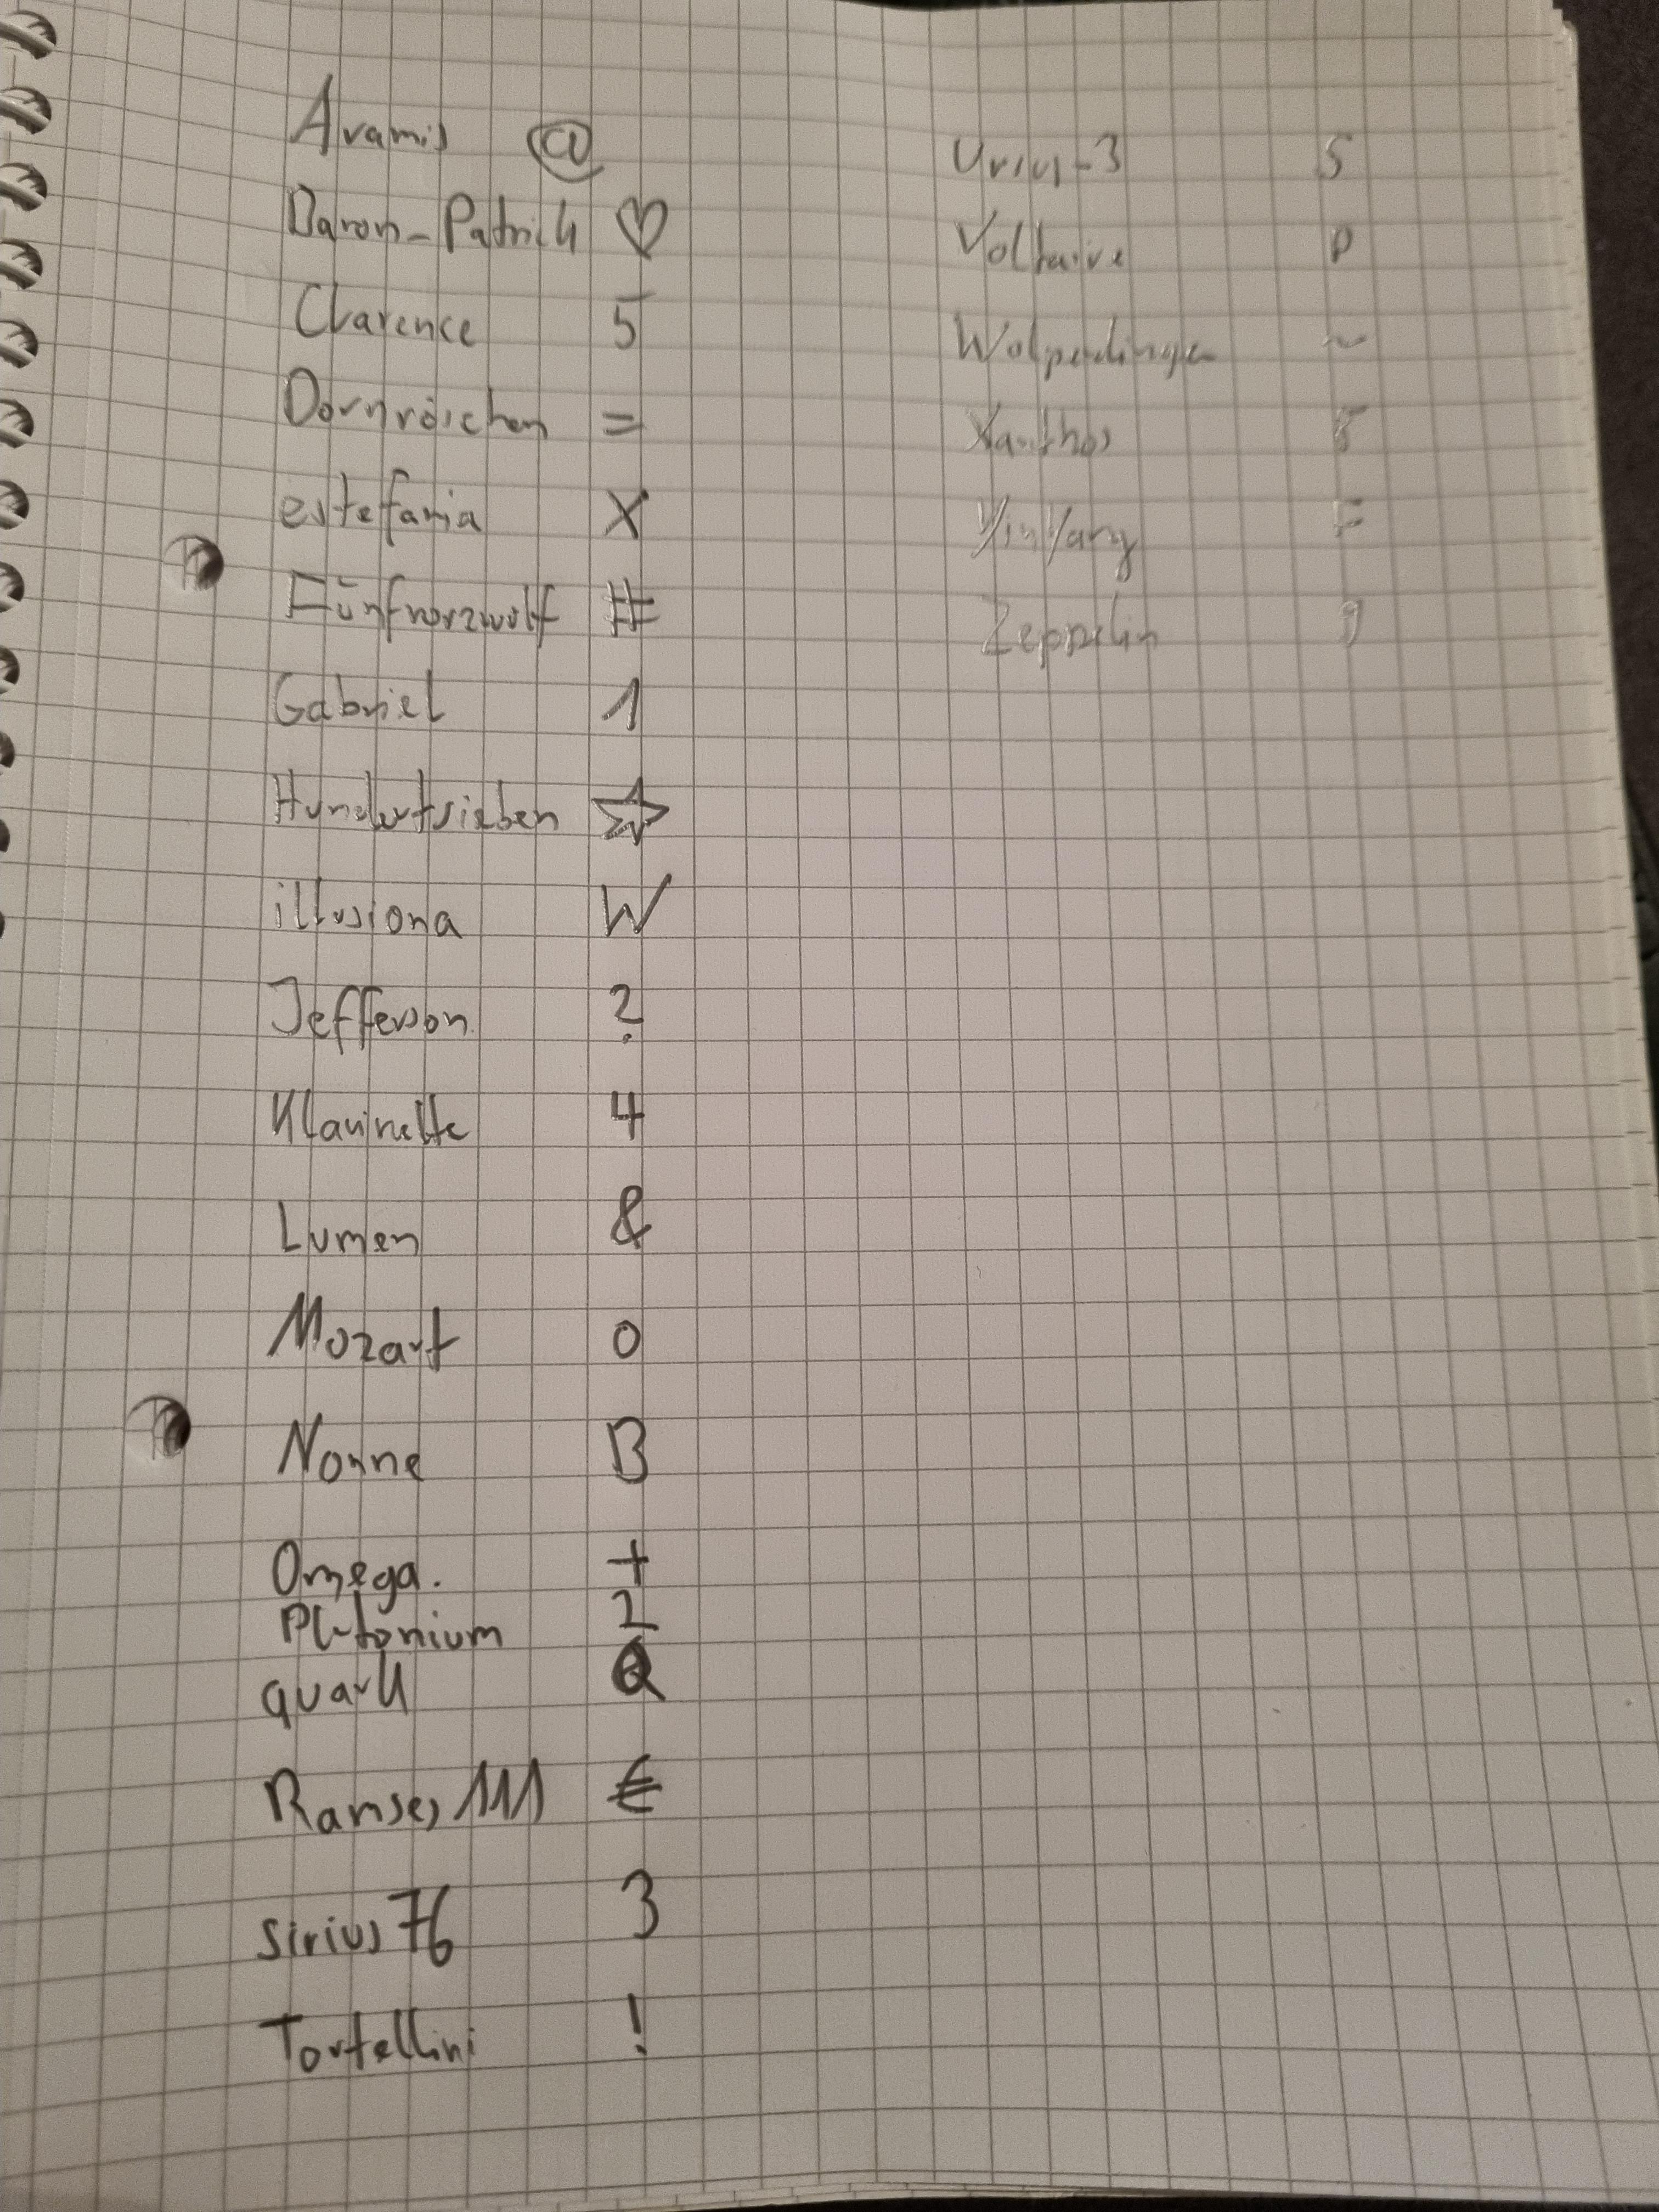 Aramis @
Baron-Patrick ♡
Clarence 5
Dornröschen =
estefania X
Fünfvorzwölf #
Gabriel 1
Hundertsieben ☆
illusiona W
Jefferson ?
Klarinette 4
Lumen &
Mozart 0
Nonne B
Omega. +
Plutonium 2
quark Q
Ramses 111 €
sirius 76 3
Tortellini !
Urius-3 S
Voltaire P
Wolperdinger ~
Xanthos
YinYang F
Zeppelin 9